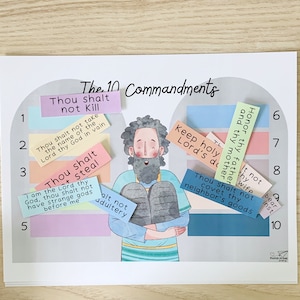 The 10 Commandments
1
2
3
5
6
7
8
9
10
Thou shalt
not Kill
Thou shalt not take
the name of the
Lord thy God in vain
Thou shalt
steal
I am the Lord thy
God, thou shalt not
have strange gods
before me
not
adultery
Honor thy father
and thy mother
Keep holy
Lord's d
not
wife
Thou shalt not
covet thy
neighbor's goods